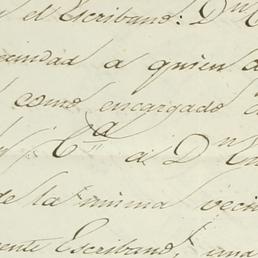 el Escribano: Dn
vecindad a quien
como encargado
y Ca a Dn
de la misma veci
ente Escribano, una